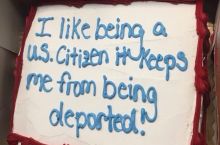 I like being a
U.S. Citizen it keeps
me from being
deported!"